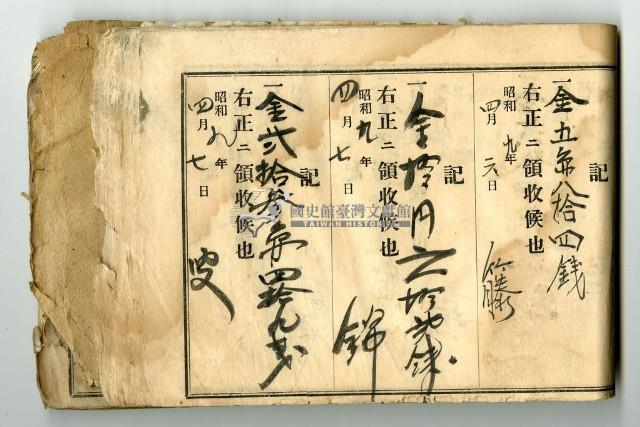 記
一金五円八拾四錢
右正ニ領收候也
昭和九年
四月六日
籐
記
一金拾円
右正ニ領收候也
昭和九年
四月七日
錦
記
一金弐拾参円四拾九戋
右正ニ領收候也
昭和九年
四月七日
國史館臺灣文獻館
TAIWAN HISTORICA